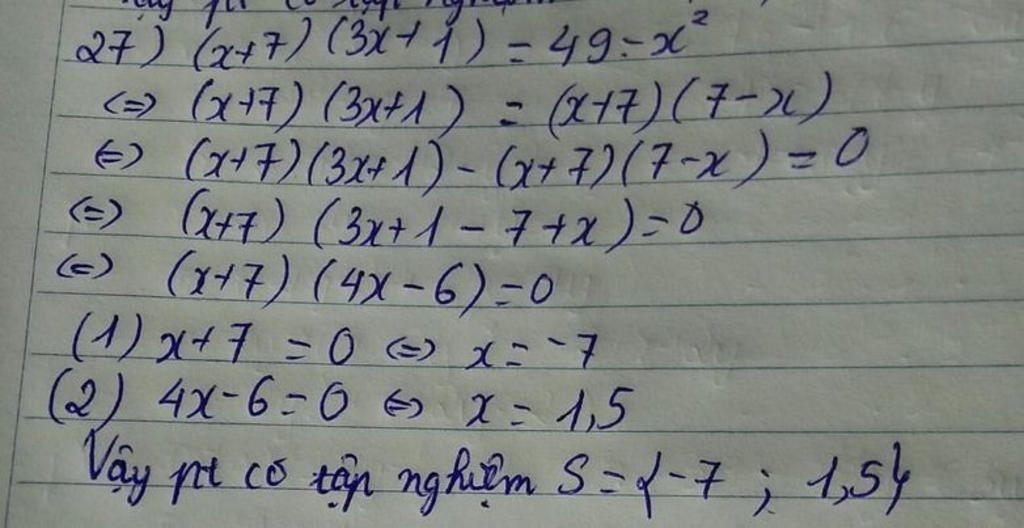 27) (x+7) (3x+1) = 49-x²
<=> (x+7) (3x+1) = (x+7) (7-x)
<=> (x+7) (3x+1) - (x+7) (7-x) = 0
<=> (x+7) (3x+1-7+x) = 0
<=> (x+7) (4x-6) = 0
(1) x+7 = 0 <=> x = -7
(2) 4x-6 = 0 <=> x = 1,5
Vậy pt có tập nghiệm S = {-7 ; 1,5}